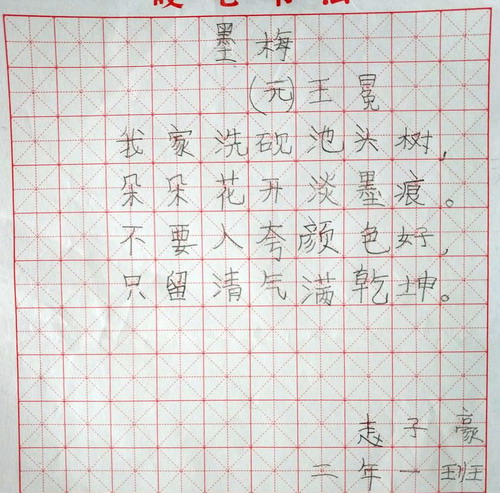 墨梅
(元)王冕
我家洗砚池头树,
朵朵花开淡墨痕。
不要人夸颜色好,
只留清气满乾坤。
子豪
二年一班